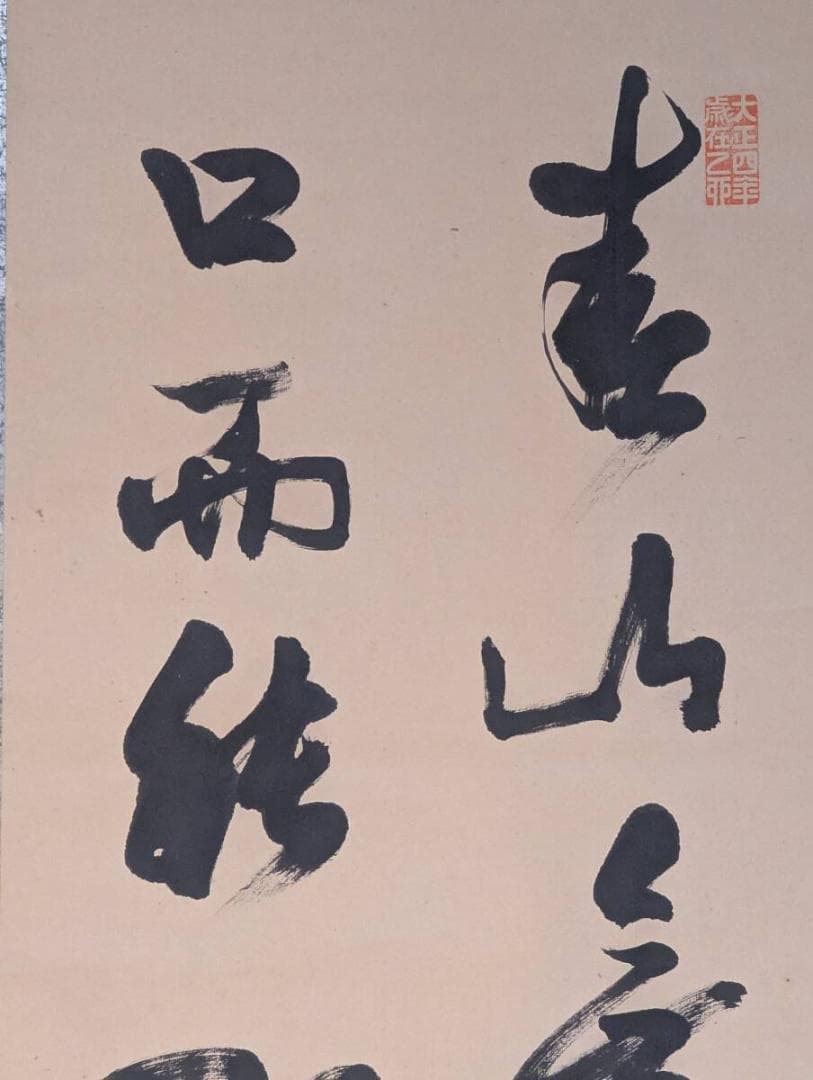 大正四年
歳在乙卯
青山
口而能